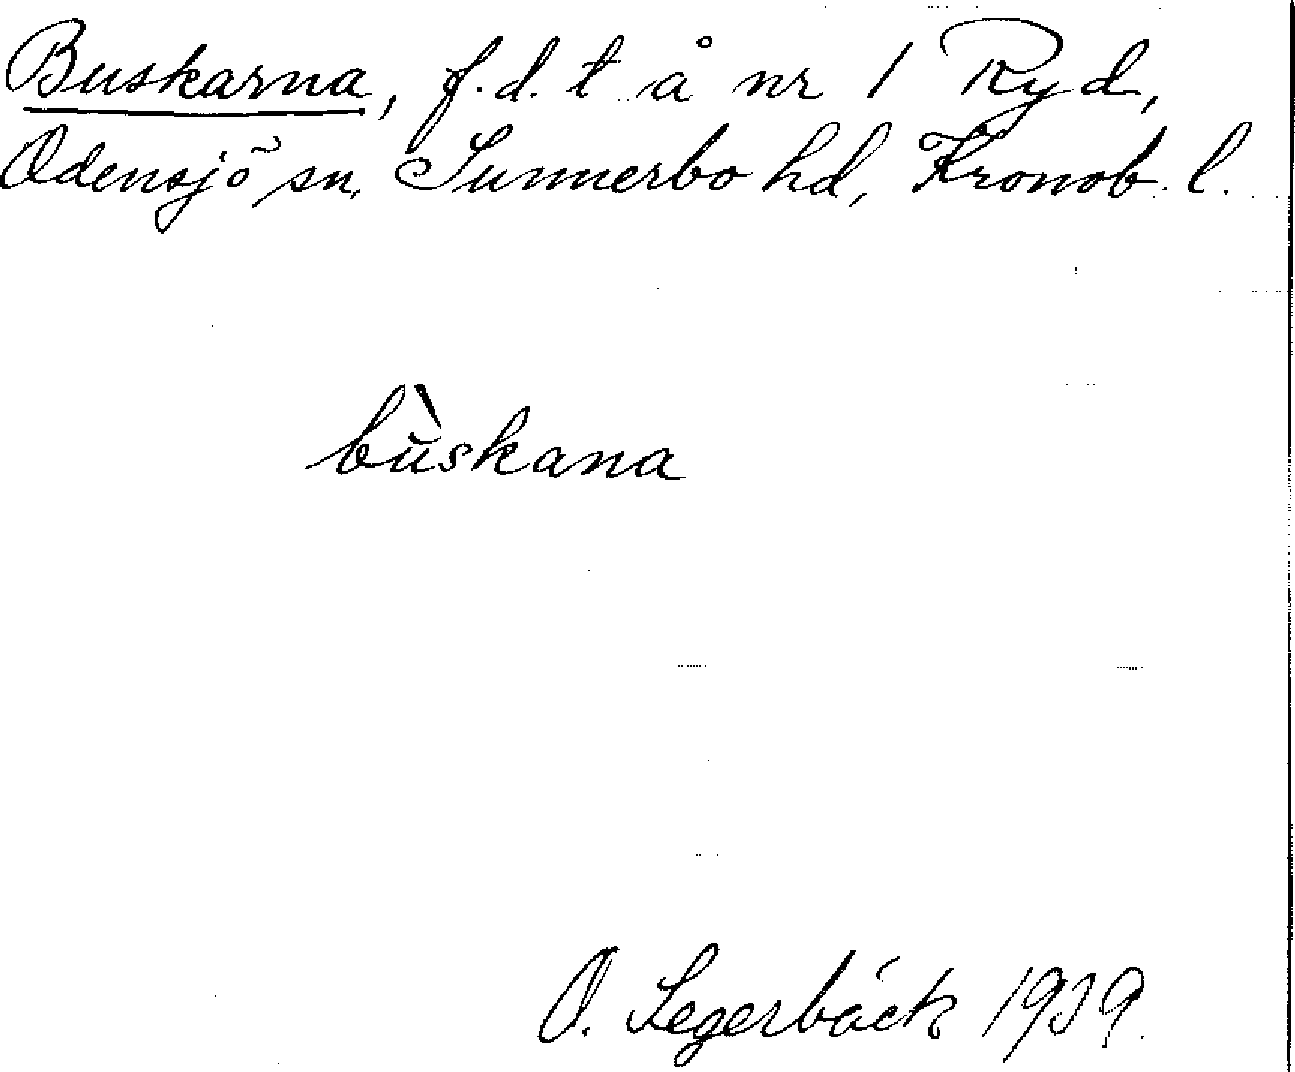 Buskarna, f.d. t å nr 1 Ryd,
Odensjö sn, Sunnerbo hd, Kronob. l.
bùskana
O. Segerbäck 1939.